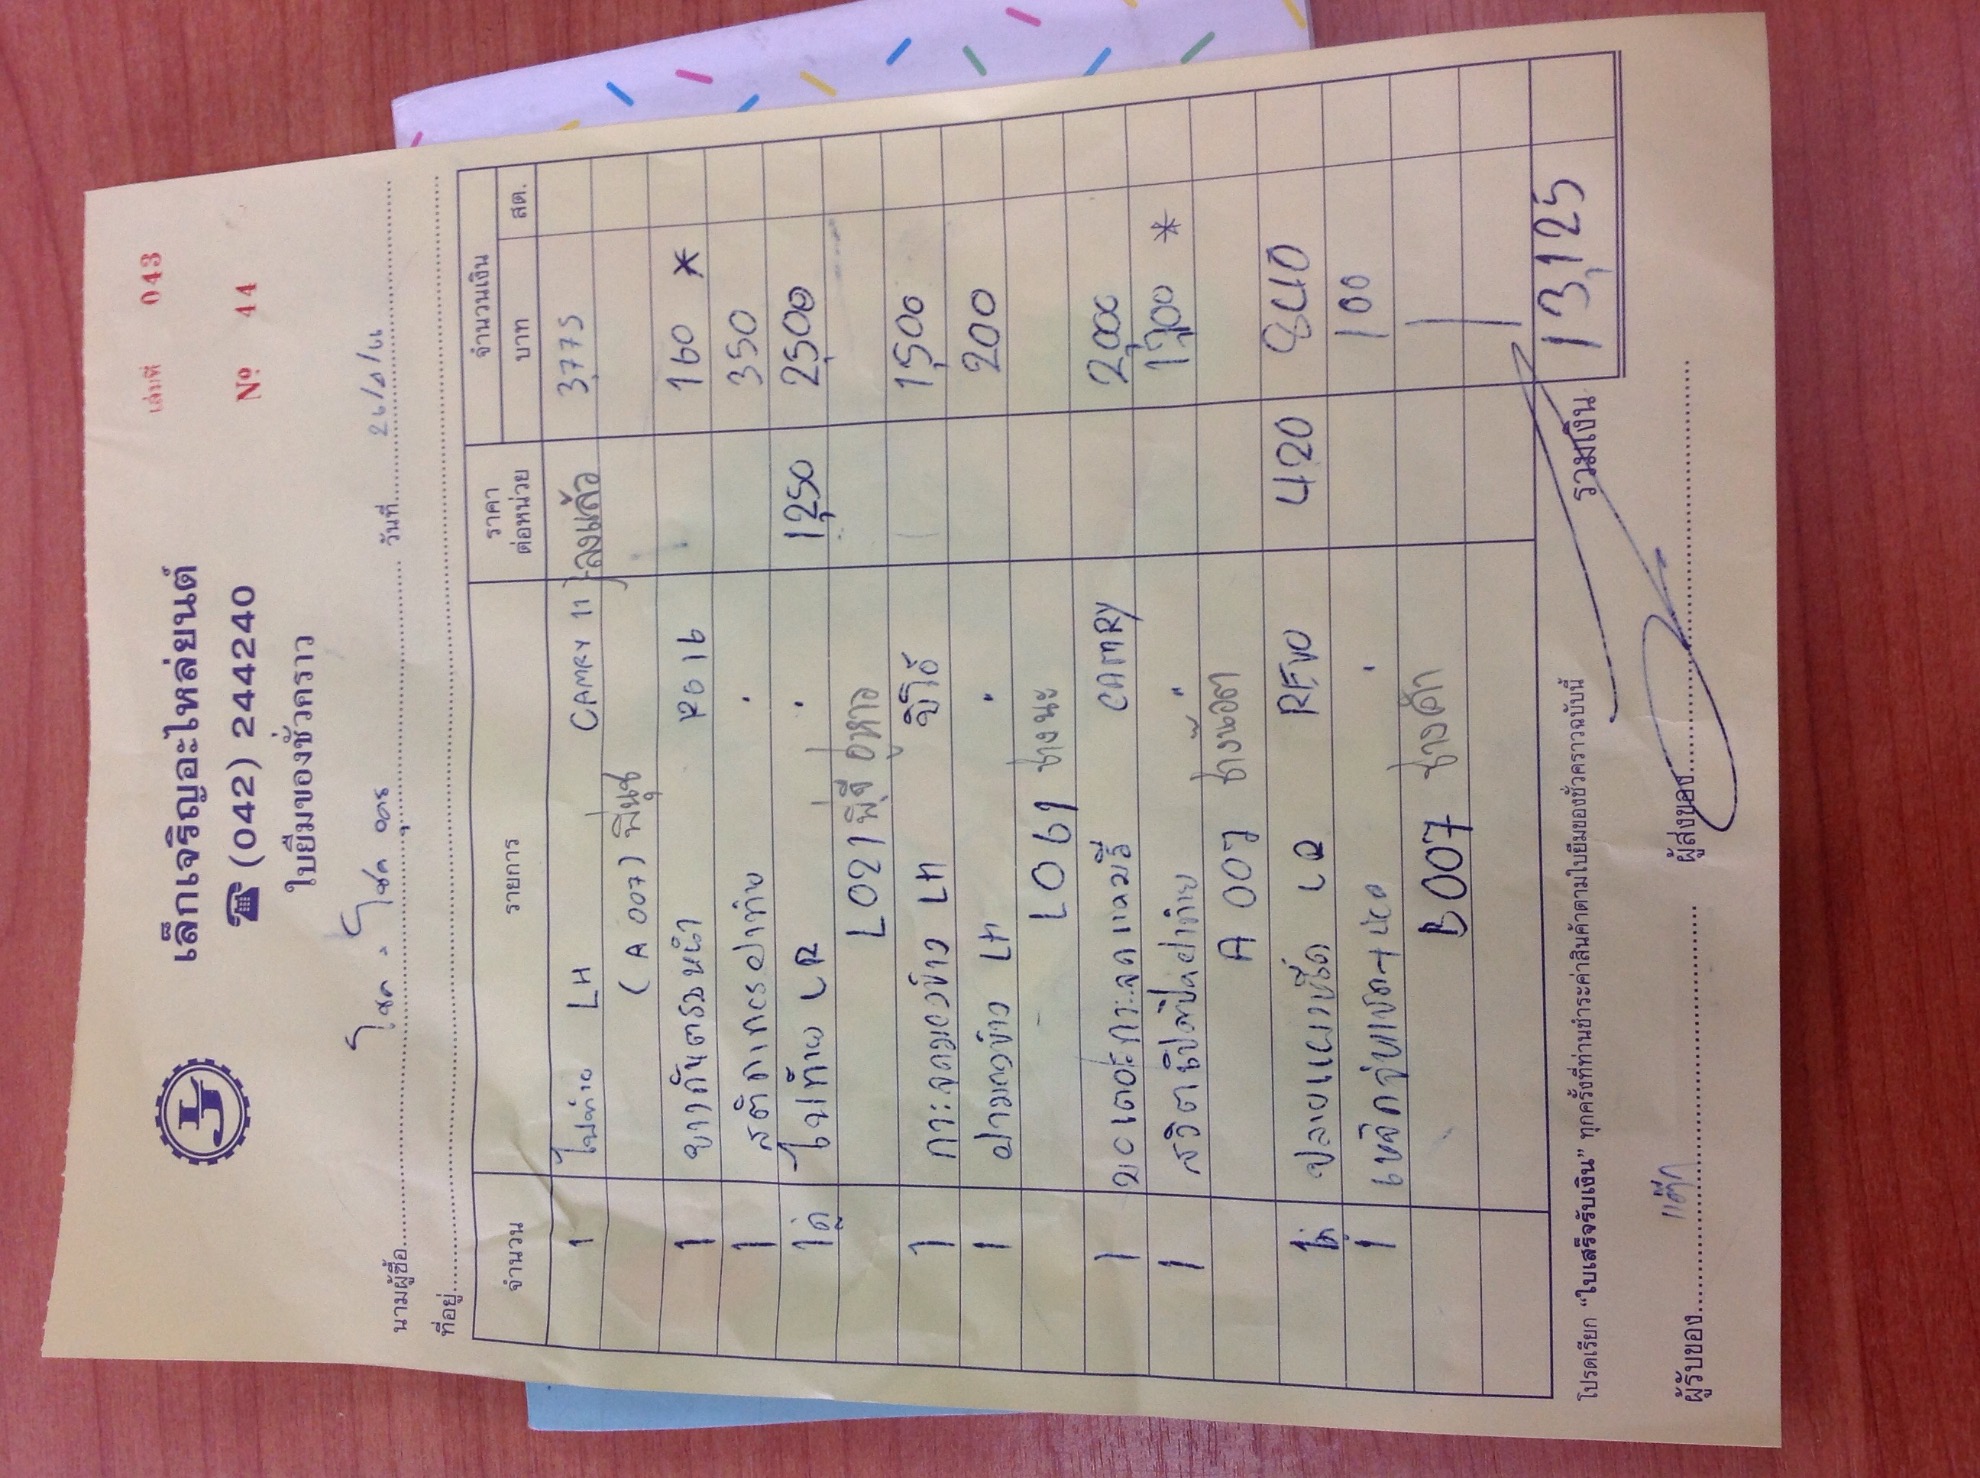 เล่มที่ 043
เล็กเจริญอะไหล่ยนต์
☎ (042) 244240
Nº 44
ใบยืมของชั่วคราว
นามผู้ซื้อ โชค . โชค อุดร วันที่ 26/8/66
ที่อยู่
จำนวน รายการ ราคาต่อหน่วย จำนวนเงิน บาท สต.
1 ไฟท้าย LH CAMRY 11 ลงแล้ว 3,775
(A 007) พี่นุช
1 160 *
1 สติกเกอร์ฝาท้าย 350
1คู่ ไฟท้าย LR 1,250 2,500
L021 พี่จี อู่หาว
1 กระจกมองข้าง LH วีโก้ 1,500
1 ฝามองข้าง LH 200
L061 ช่างนะ
1 มอเตอร์กระจก CAMRY 2,000
1 สวิตซ์เปิดปิดฝาท้าย 1,700 *
A 007 ช่างน๊อต
LR REVO 420 840
1 100
B007 ช่างดำ
รวมเงิน 13,125
โปรดเรียก "ใบเสร็จรับเงิน" ทุกครั้งที่ท่านชำระค่าสินค้าตามใบยืมของชั่วคราวฉบับนี้
ผู้รับของ ผู้ส่งของ